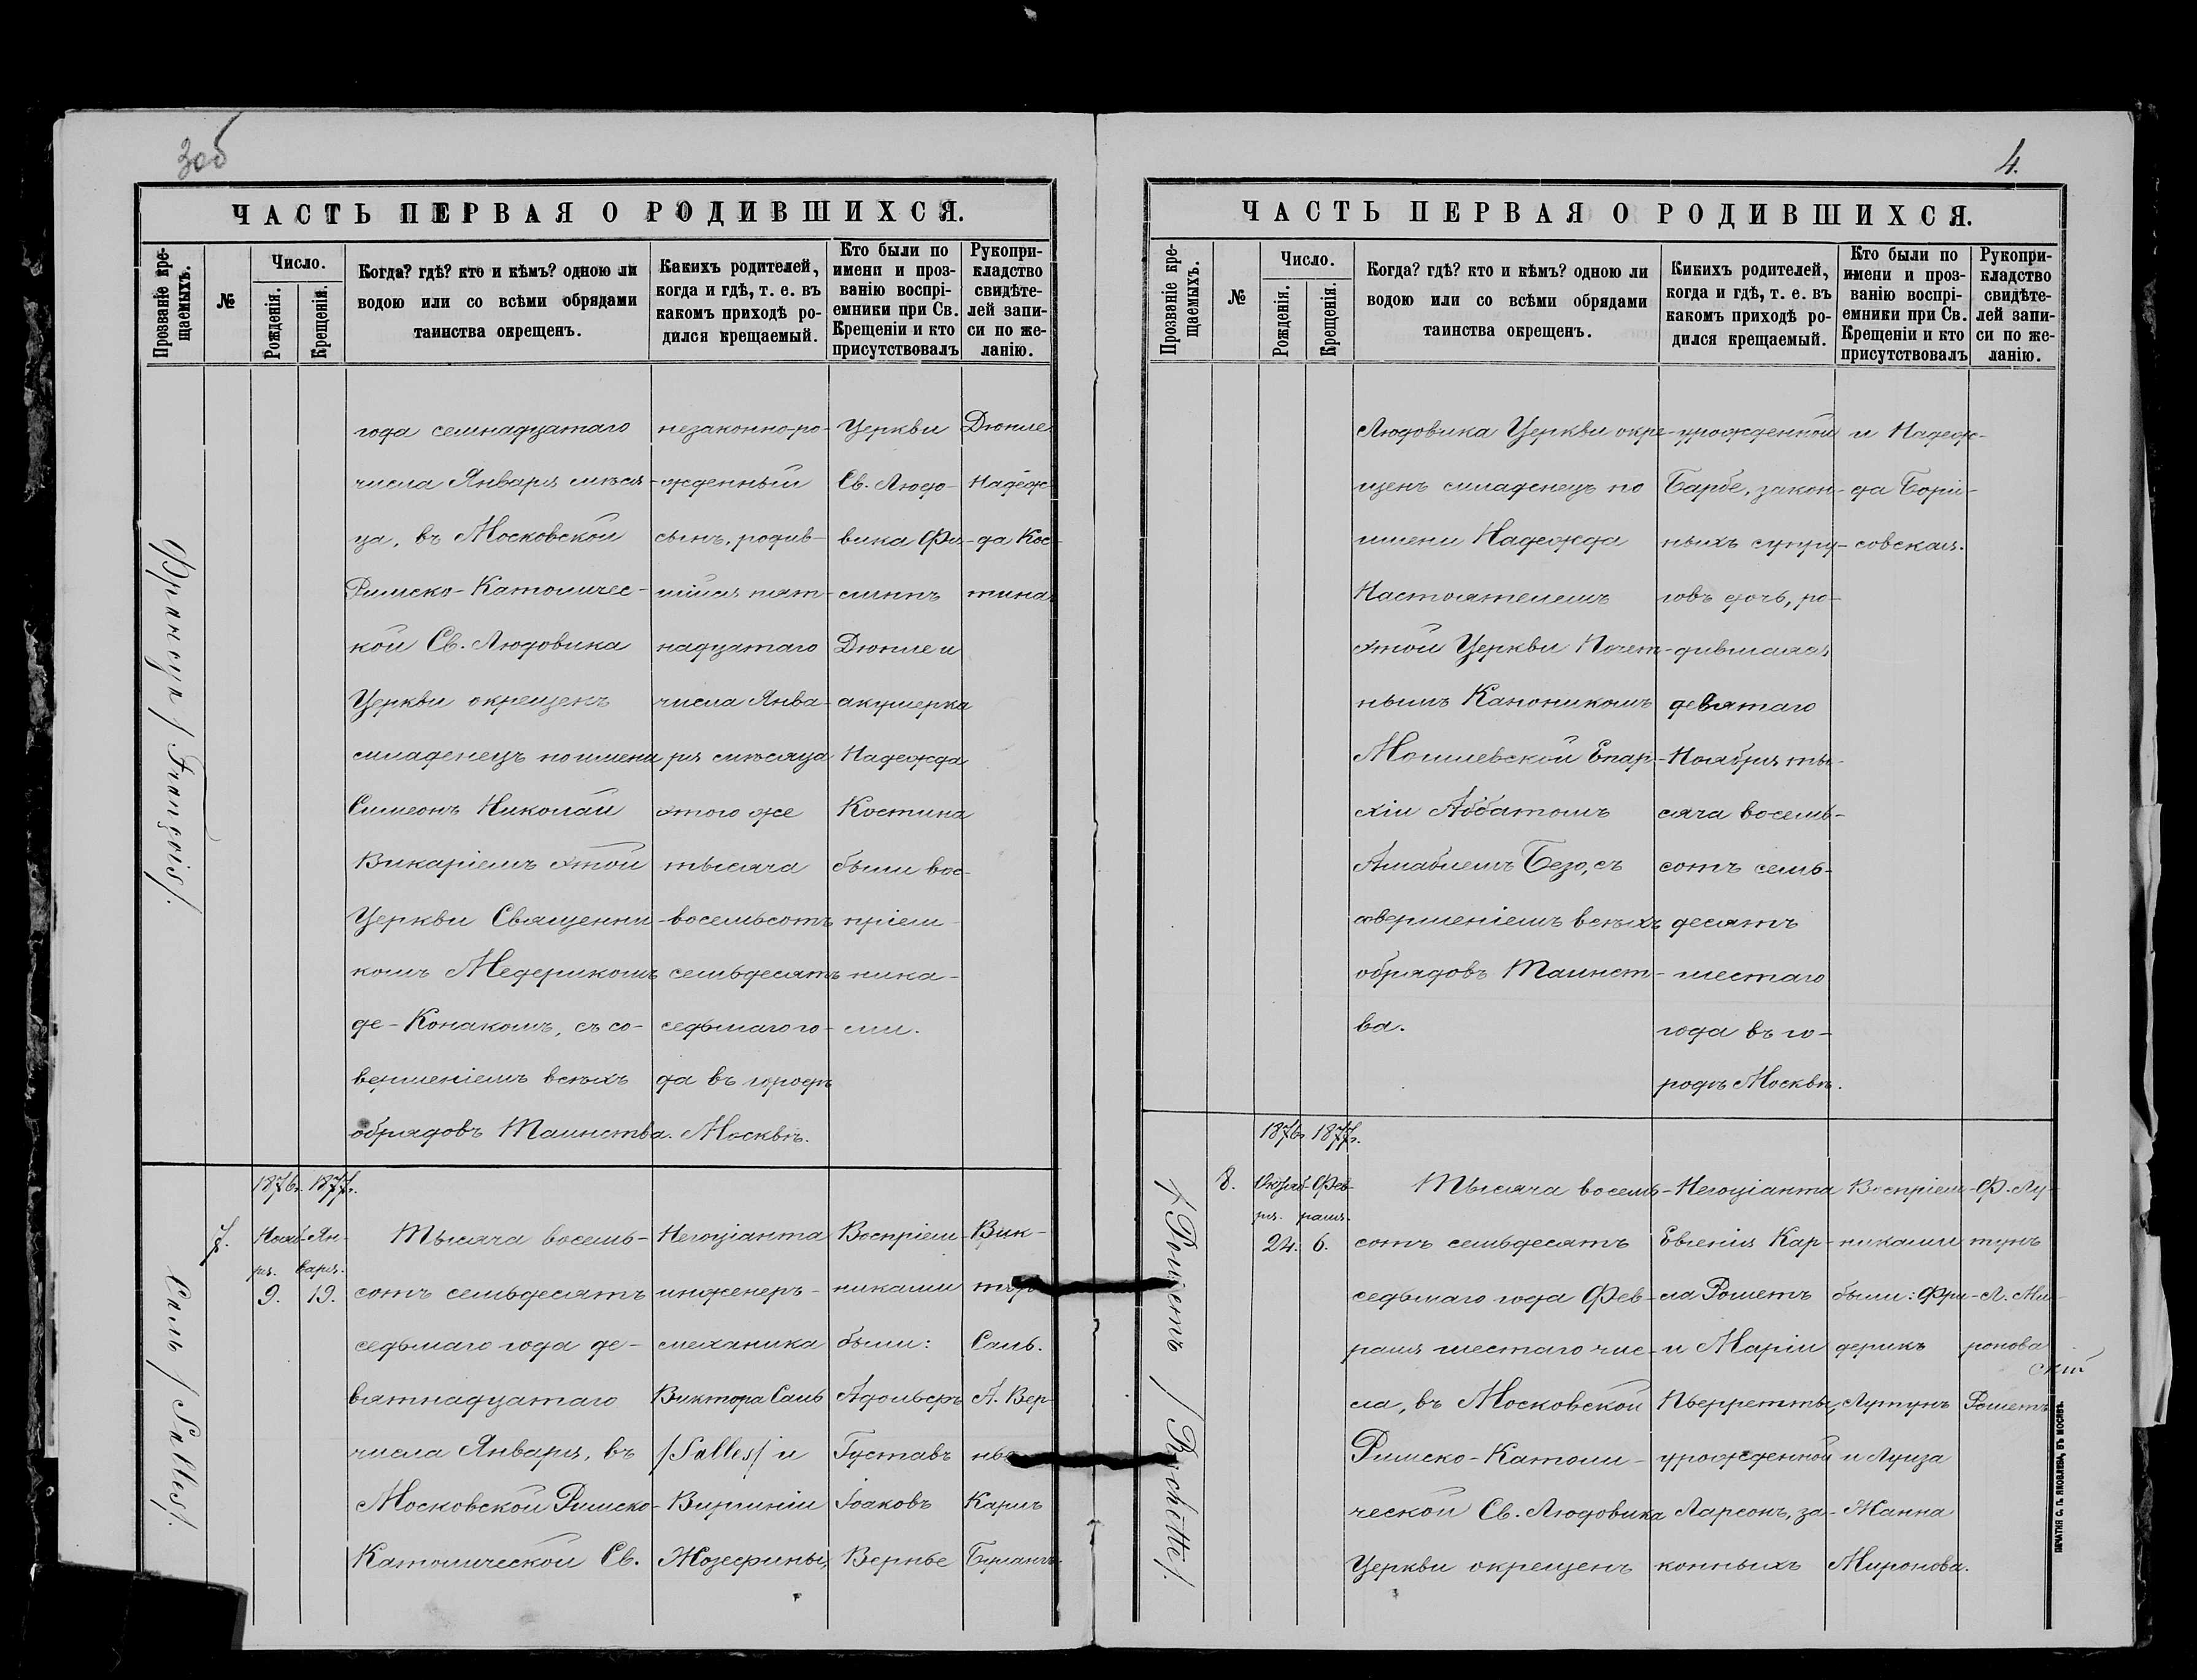 3об
ЧАСТЬ ПЕРВАЯ О РОДИВШИХСЯ.
Прозваніе крещаемыхъ.
№
Число.
Рожденія.
Крещенія.
Когда? гдѣ? кто и кѣмъ? одною ли
водою или со всѣми обрядами
таинства окрещенъ.
Какихъ родителей,
когда и гдѣ, т. е. въ
какомъ приходѣ ро-
дился крещаемый.
Кто были по
имени и проз-
ванію воспрі-
емники при Св.
Крещеніи и кто
присутствовалъ
Рукопри-
кладство
свидѣте-
лей запи-
си по же-
ланію.
Франсуа / François /.
года семнадцатаго
числа Января мѣся-
ца, въ Московской
Римско-Католичес-
кой Св. Людовика
Церкви окрещенъ
младенецъ по имени
Симеонъ Николай
Викаріемъ этой
Церкви Священни-
комъ Медерикомъ
де-Конакомъ, съ со-
вершеніемъ всѣхъ
обрядовъ Таинства.
незаконно-ро-
жденный
сынъ, родив-
шійся пят-
надцатаго
числа Янва-
ря мѣсяца
этого же
тысяча
восемьсотъ
семьдесятъ
седьмаго го-
да въ городѣ
Москвѣ.
Церкви
Св. Людо-
вика Фи-
липпъ
Дюпле и
акушерка
Надежда
Костина
были вос-
пріем-
ника-
ми.
Дюпле
Надеж
да Кос-
тина
Саль / Salles /.
7.
1876г. 1877г.
Нояб- Ян-
ря. варя.
9. 19.
Тысяча восемь-
сотъ семьдесятъ
седьмаго года де-
вятнадцатаго
числа Января, въ
Московской Римско-
Католической Св.
Негоціанта
инженеръ-
механика
Виктора Саль
/Salles/ и
Виргиніи
Жозефины,
Воспріем-
никами
были:
Адольфъ
Густавъ
Іоаковъ
Вернье
Вик-
Саль.
А. Вер-
Карлъ
4.
ЧАСТЬ ПЕРВАЯ О РОДИВШИХСЯ.
Прозваніе крещаемыхъ.
№
Число.
Рожденія.
Крещенія.
Когда? гдѣ? кто и кѣмъ? одною ли
водою или со всѣми обрядами
таинства окрещенъ.
Кикихъ родителей,
когда и гдѣ, т. е. въ
какомъ приходѣ ро-
дился крещаемый.
Кто были по
имени и проз-
ванію воспрі-
емники при Св.
Крещеніи и кто
присутствовалъ
Рукопри-
кладство
свидѣте-
лей запи-
си по же-
ланію.
Людовика Церкви окре-
щенъ младенецъ по
имени Надежда
Настоятелемъ
этой Церкви Почет-
нымъ Каноникомъ
Могилевской Епар-
хіи Аббатомъ
Амабиемъ Безо, съ
совершеніемъ всѣхъ
обрядовъ Таинст-
ва.
урожденной
Барбе, закон-
ныхъ супру-
говъ дочь, ро-
дившаяся
девятаго
Ноября ты-
сяча восемь-
сотъ семь-
десятъ
шестаго
года въ го-
родѣ Москвѣ.
и Надеж-
да Бори-
совская.
Рошетъ / Rochette /.
8.
1876г 1877г.
Фев-
ря. раля.
24. 6.
Тысяча восемь-
сотъ семьдесятъ
седьмаго года Фев-
раля шестаго чис-
ла, въ Московской
Римско-Католи-
ческой Св. Людовика
Церкви окрещенъ
Негоціанта
Евгенія Кар-
ла Рошетъ
и Маріи
Пьерретты,
урожденной
Ларсонъ, за-
конныхъ
Воспріем-
никами
были: Фри-
дерикъ
Лутунъ
и Луиза
Жанна
Миронова.
Ф. Лу-
тунъ
Л. Ми-
ронова
Рошетъ
ПЕЧАТНЯ С. П. ЯКОВЛЕВА, ВЪ МОСКВѢ.